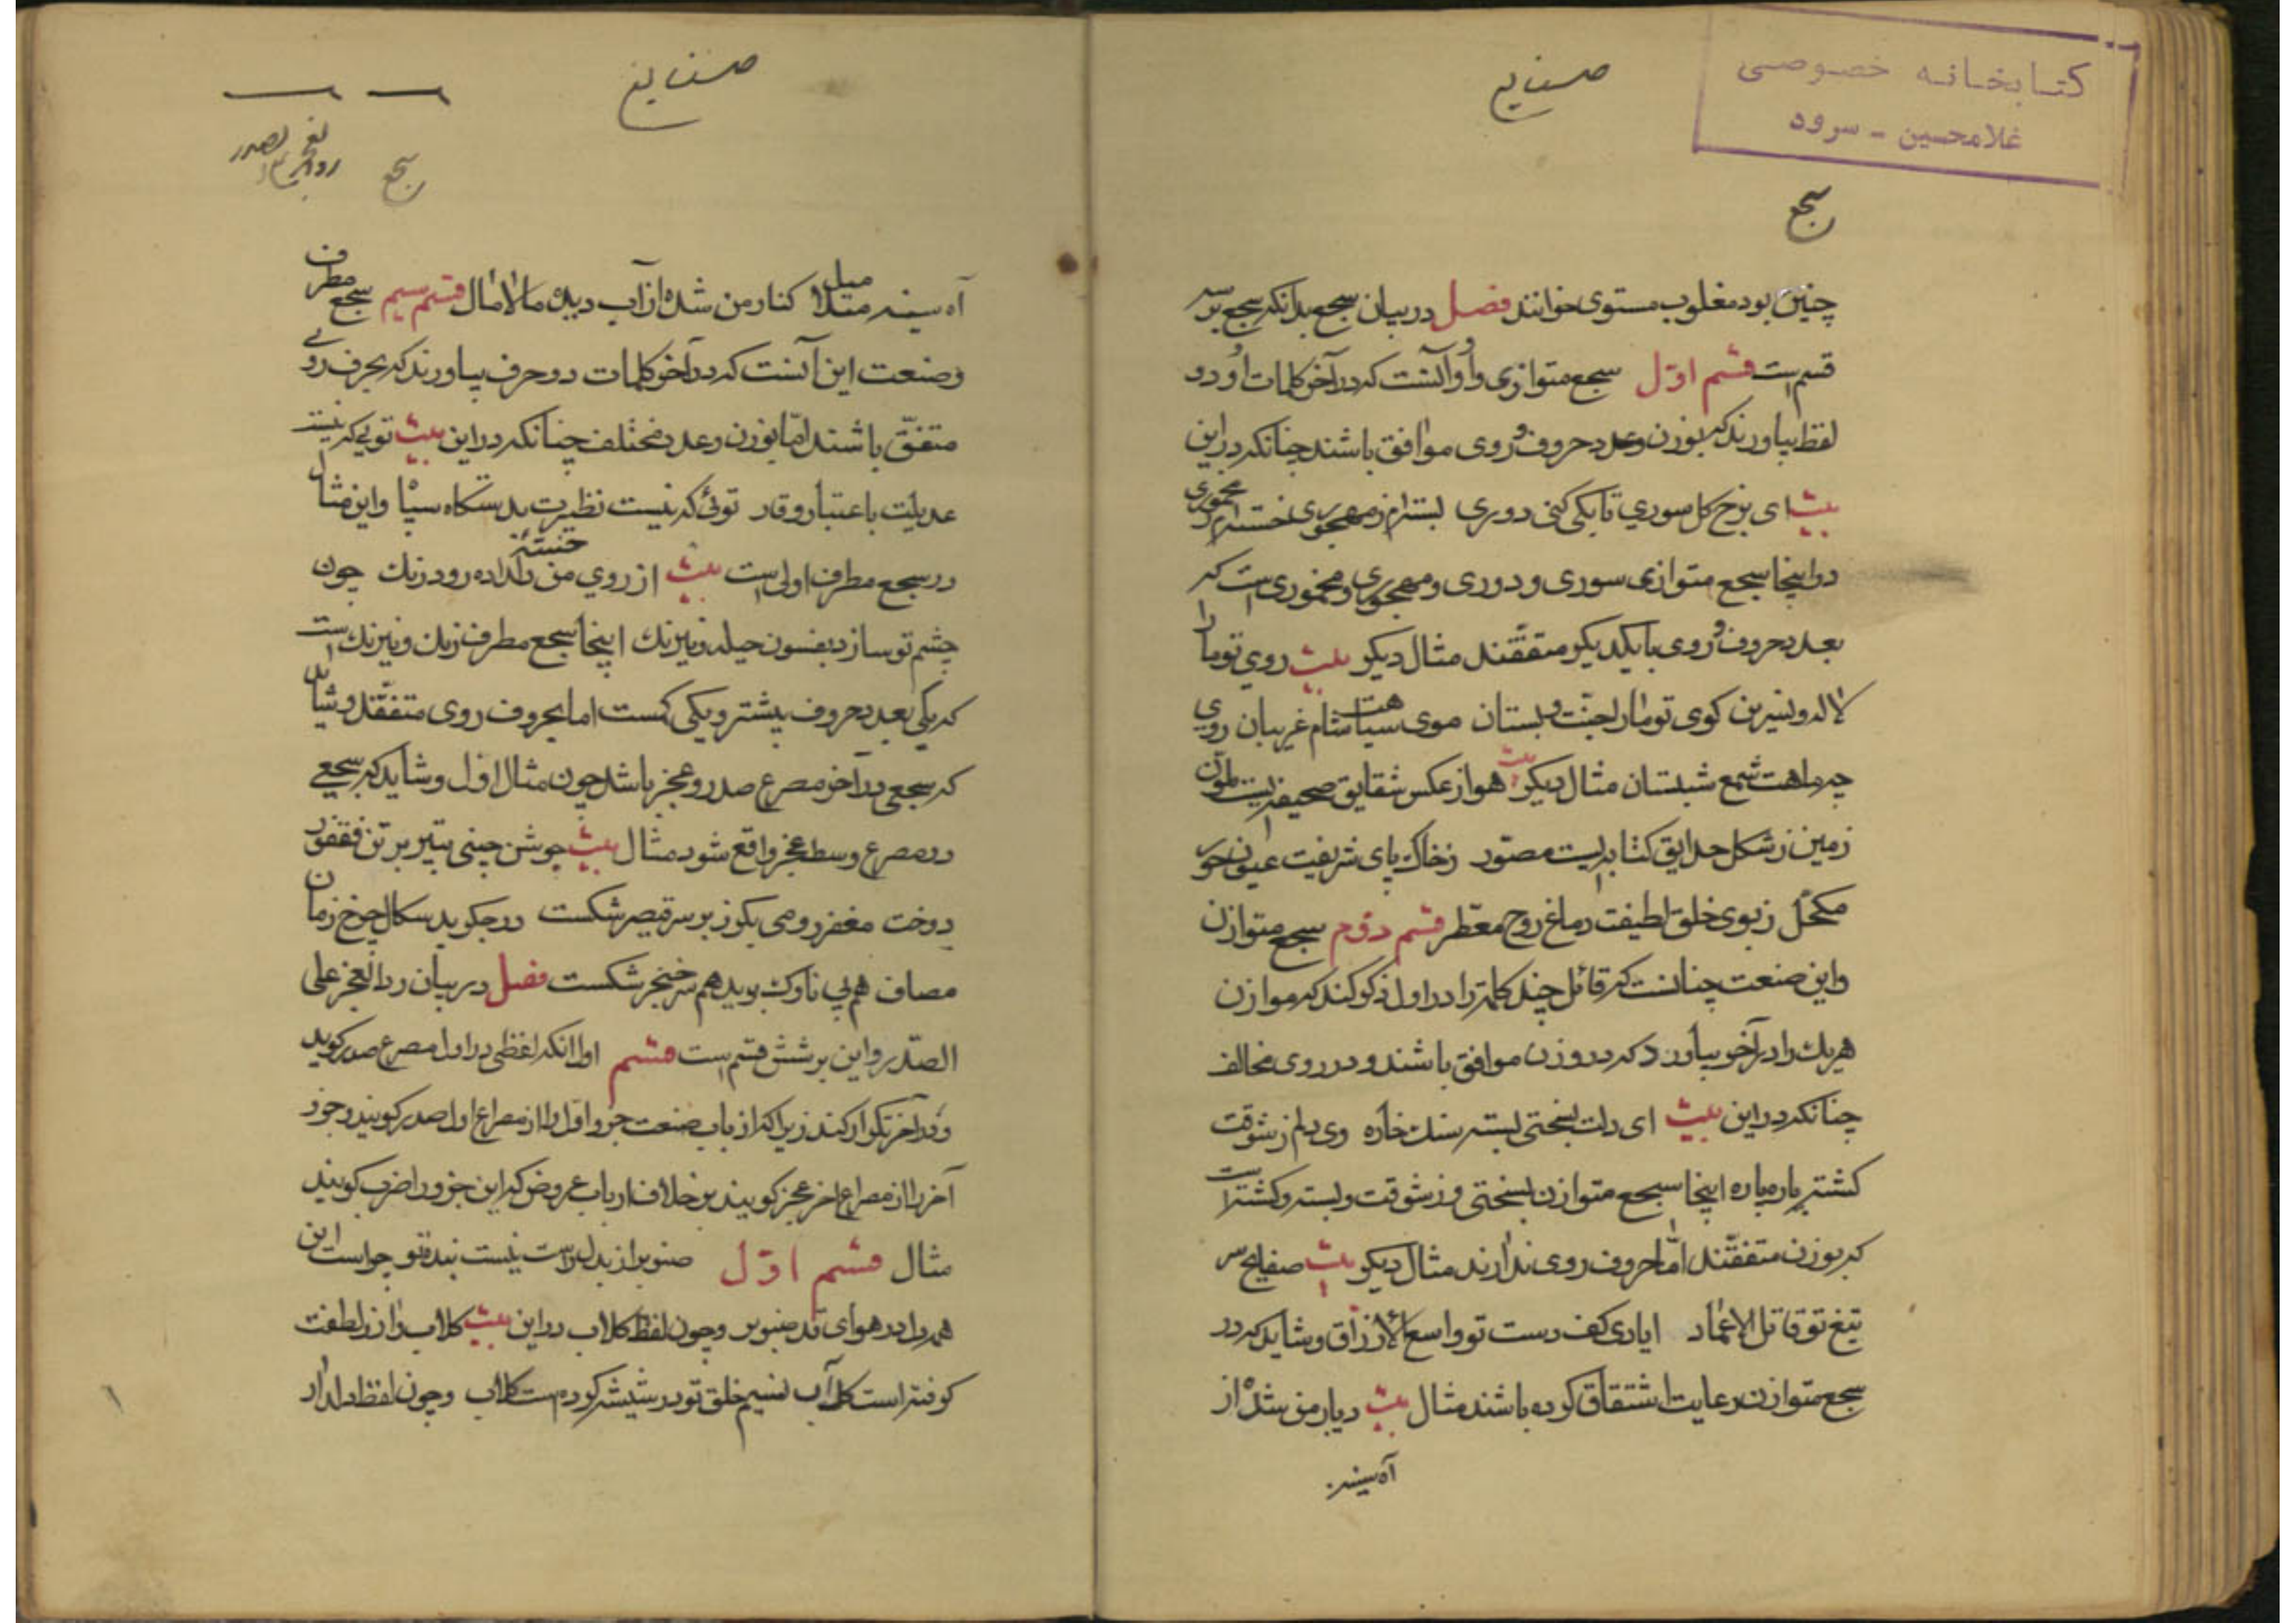 صنایع
کتابخانه خصوصی
غلامحسین - سرود
سجع
چنین بود مغلوب مستوی خوانند فصل در بیان سجع بدانکه سجع بر سه
قسم است قسم اوّل سجع متوازی و او آنست که در آخر کلمات او دو
لفظ بیاورند که بوزن و عدد حروف و روی موافق باشند چنانکه در این
بیت ای برخ کل سوری تا بکی کنی دوری بسترام ز مهجوری خسته‌ام ز مخموری
در اینجا سجع متوازی سوری و دوری و مهجوری و مخموری است که
بعدد حروف و روی با یکدیکر متفقند مثال دیکر بیت روی تو مارا
لاله و نسرین کوی تو مارا جنت و بستان موی سیاهت شام غریبان روی
چه ماهت شمع شبستان مثال دیکر بیت هوا ز عکس شقایق صحیفه‌ایست ملون
زمین ز شکل حدایق کتابه‌ایست مصوّر ز خاک پای شریفت عیون حور
مکحّل ز بوی خلق لطیفت دماغ روح معطّر قسم دوّم سجع متوازن
و این صنعت چنانست که قائل چند کلمه را در اول ذکر کند که موازن
هر یک را در آخر بیاورد که در وزن موافق باشند و در روی مخالف
چنانکه در این بیت ای دلت بسختی بسته سنک خاره وی دلم ز شوقت
کشته پاره پاره اینجا سجع متوازن بسختی و ز شوقت و بسته و کشته است
که بوزن متفقند امّا حروف روی ندارند مثال دیکر بیت صفایح سر
تیغ تو قاتل الاعمار ایاری کف دست تو واسع الأرزاق و شاید که در
سجع متوازن رعایت اشتقاق کرده باشند مثال بیت دیار من شده از
آه سینه
صنایع
سجع
آه سینه میلا میل کنار من شده از آب دیده مالامال قسم سیم سجع مطرف
و صنعت این آنست که در آخر کلمات دو حرف بیاورند که بحرف روی
متفق باشند امّا بوزن و عدد مختلف چنانکه در این بیت تویی که نیست
عدیلت باعتبار و قار توئی که نیست نظیرت بدستکاه سپاه و این مثال
در سجع مطرف اولی است بیت از روی من خسته داده رود زنک چون
چشم تو سازد بفسون حیله و نیرنک اینجا سجع مطرف زنک و نیرنک است
که یکی بعدد حروف بیشتر و یکی کمست اما بحروف روی متفقند و شاید
که سجعی در آخر مصرع صدر و عجز باشد چون مثال اوّل و شاید که سجعی
در مصرع وسط عجز واقع شود مثال بیت جوشن چینی بتیر بر تن فغفور
دوخت مغفر رومی بکرز بر سر قیصر شکست در جکوید سکال چرخ زمان
مصاف هم پی ناوک برید هم سر خنجر شکست فصل در بیان رد العجز علی
الصّدر و این بر شش قسم است قسم اوّل آنکه لفظی در اول مصرع صدر کوید
و در آخر تکرار کند زیرا که ارباب صنعت جزو اوّل را از مصراع اول صدر کویند و جزو
آخر را از مصراع اخر عجز کویند بر خلاف ارباب عروض که این جزو را ضرب کویند
مثال قسم اوّل صنوبر از بدل راست نیست بنده تو چراست این
همه را در هوای قد صنوبر و چون لفظ کلاب در این بیت کلاب را ز لطفت
کرفته است کل آب نسیم خلق تو در شیشه کرده است کلاب و چون لفظ دلدار